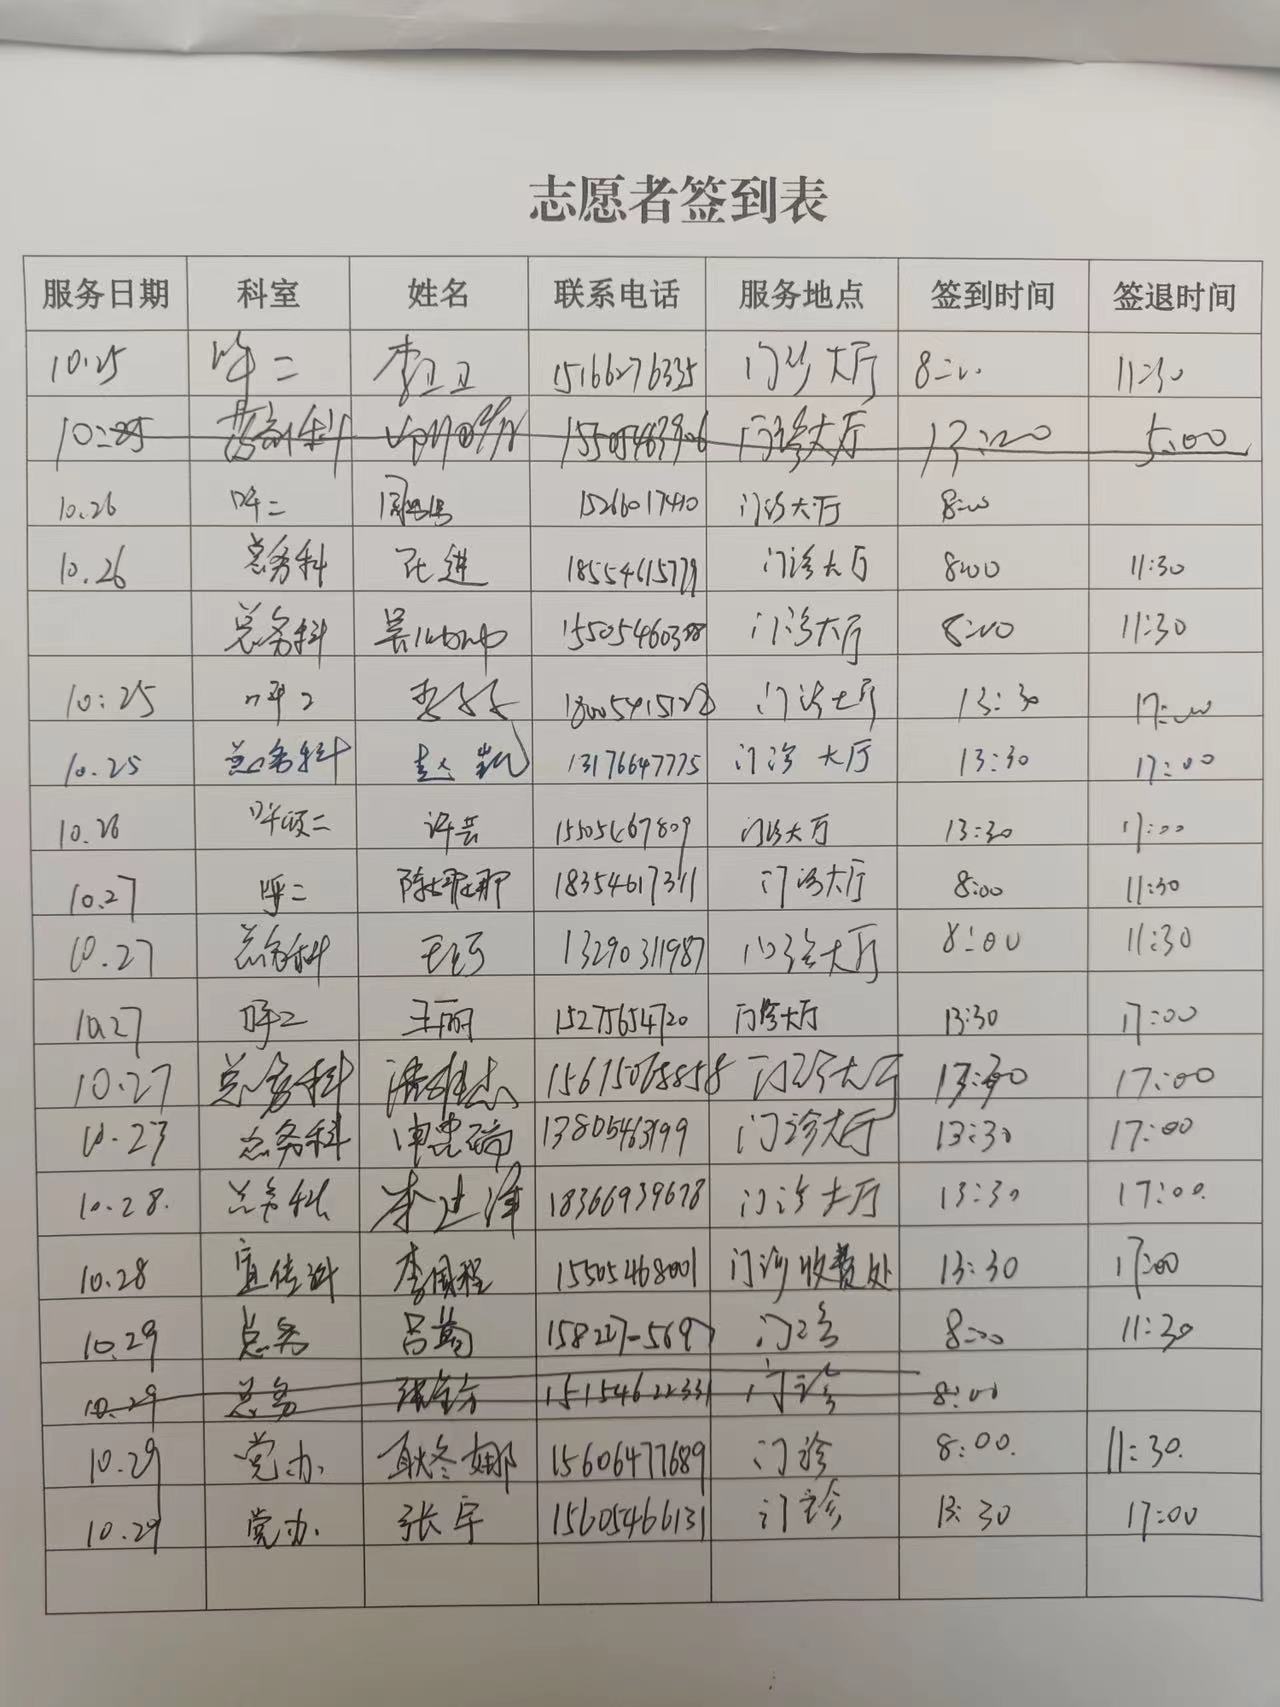 志愿者签到表
服务日期 科室 姓名 联系电话 服务地点 签到时间 签退时间
10.25 呼二 李卫卫 15166276335 门诊大厅 8:00 11:30
门诊大厅 5:00
10.26 呼二 15266017410 门诊大厅 8:00
10.26 总务科 张进 18554615779 门诊大厅 8:00 11:30
总务科 门诊大厅 8:00 11:30
10:25 呼2 门诊大厅 13:30 17:00
10.25 总务科 赵凯 13176647775 门诊大厅 13:30 17:00
10.26 呼吸二 许芸 15505467809 门诊大厅 13:30 17:00
10.27 呼二 陈娜娜 18354617311 门诊大厅 8:00 11:30
10.27 总务科 13290311987 门诊大厅 8:00 11:30
10.27 呼二 王丽 15275654720 门诊大厅 13:30 17:00
10.27 总务科 门诊大厅 17:00
10.27 总务科 13805463199 门诊大厅 13:30 17:00
10.28. 总务科 李建泽 18366939678 门诊大厅 13:30 17:00.
10.28 宣传科 李国程 15505468001 门诊收费处 13:30 17:00
10.29 总务 门诊 8:00 11:30
10.29 总务 15154622331 门诊 8:00
10.29 党办 耿冬娜 15606477689 门诊 8:00. 11:30.
10.29 党办 张宇 15605466131 门诊 13:30 17:00